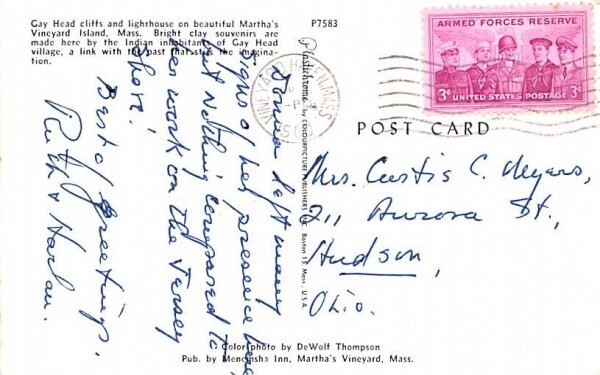 Gay Head cliffs and lighthouse on beautiful Martha's
Vineyard Island, Mass. Bright clay souvenirs are
made here by the Indian inhabitants of Gay Head
village, a link with the past that stirs the imagina-
tion.
P7583
Donna left many
signs of her presence here
but nothing compared to
her work on the Jersey
Shore!
Best of Greetings,
Ruth & Harlan.
Plastichrome by COLOURPICTURE PUBLISHERS, INC. Boston 15, Mass., U.S.A.
VINEYARD HAVEN, MASS.
ARMED FORCES RESERVE
3¢ UNITED STATES POSTAGE 3¢
POST CARD
Mrs. Curtis C. Meyers,
211 Aurora St.,
Hudson,
Ohio.
Color photo by DeWolf Thompson
Pub. by Menemsha Inn, Martha's Vineyard, Mass.